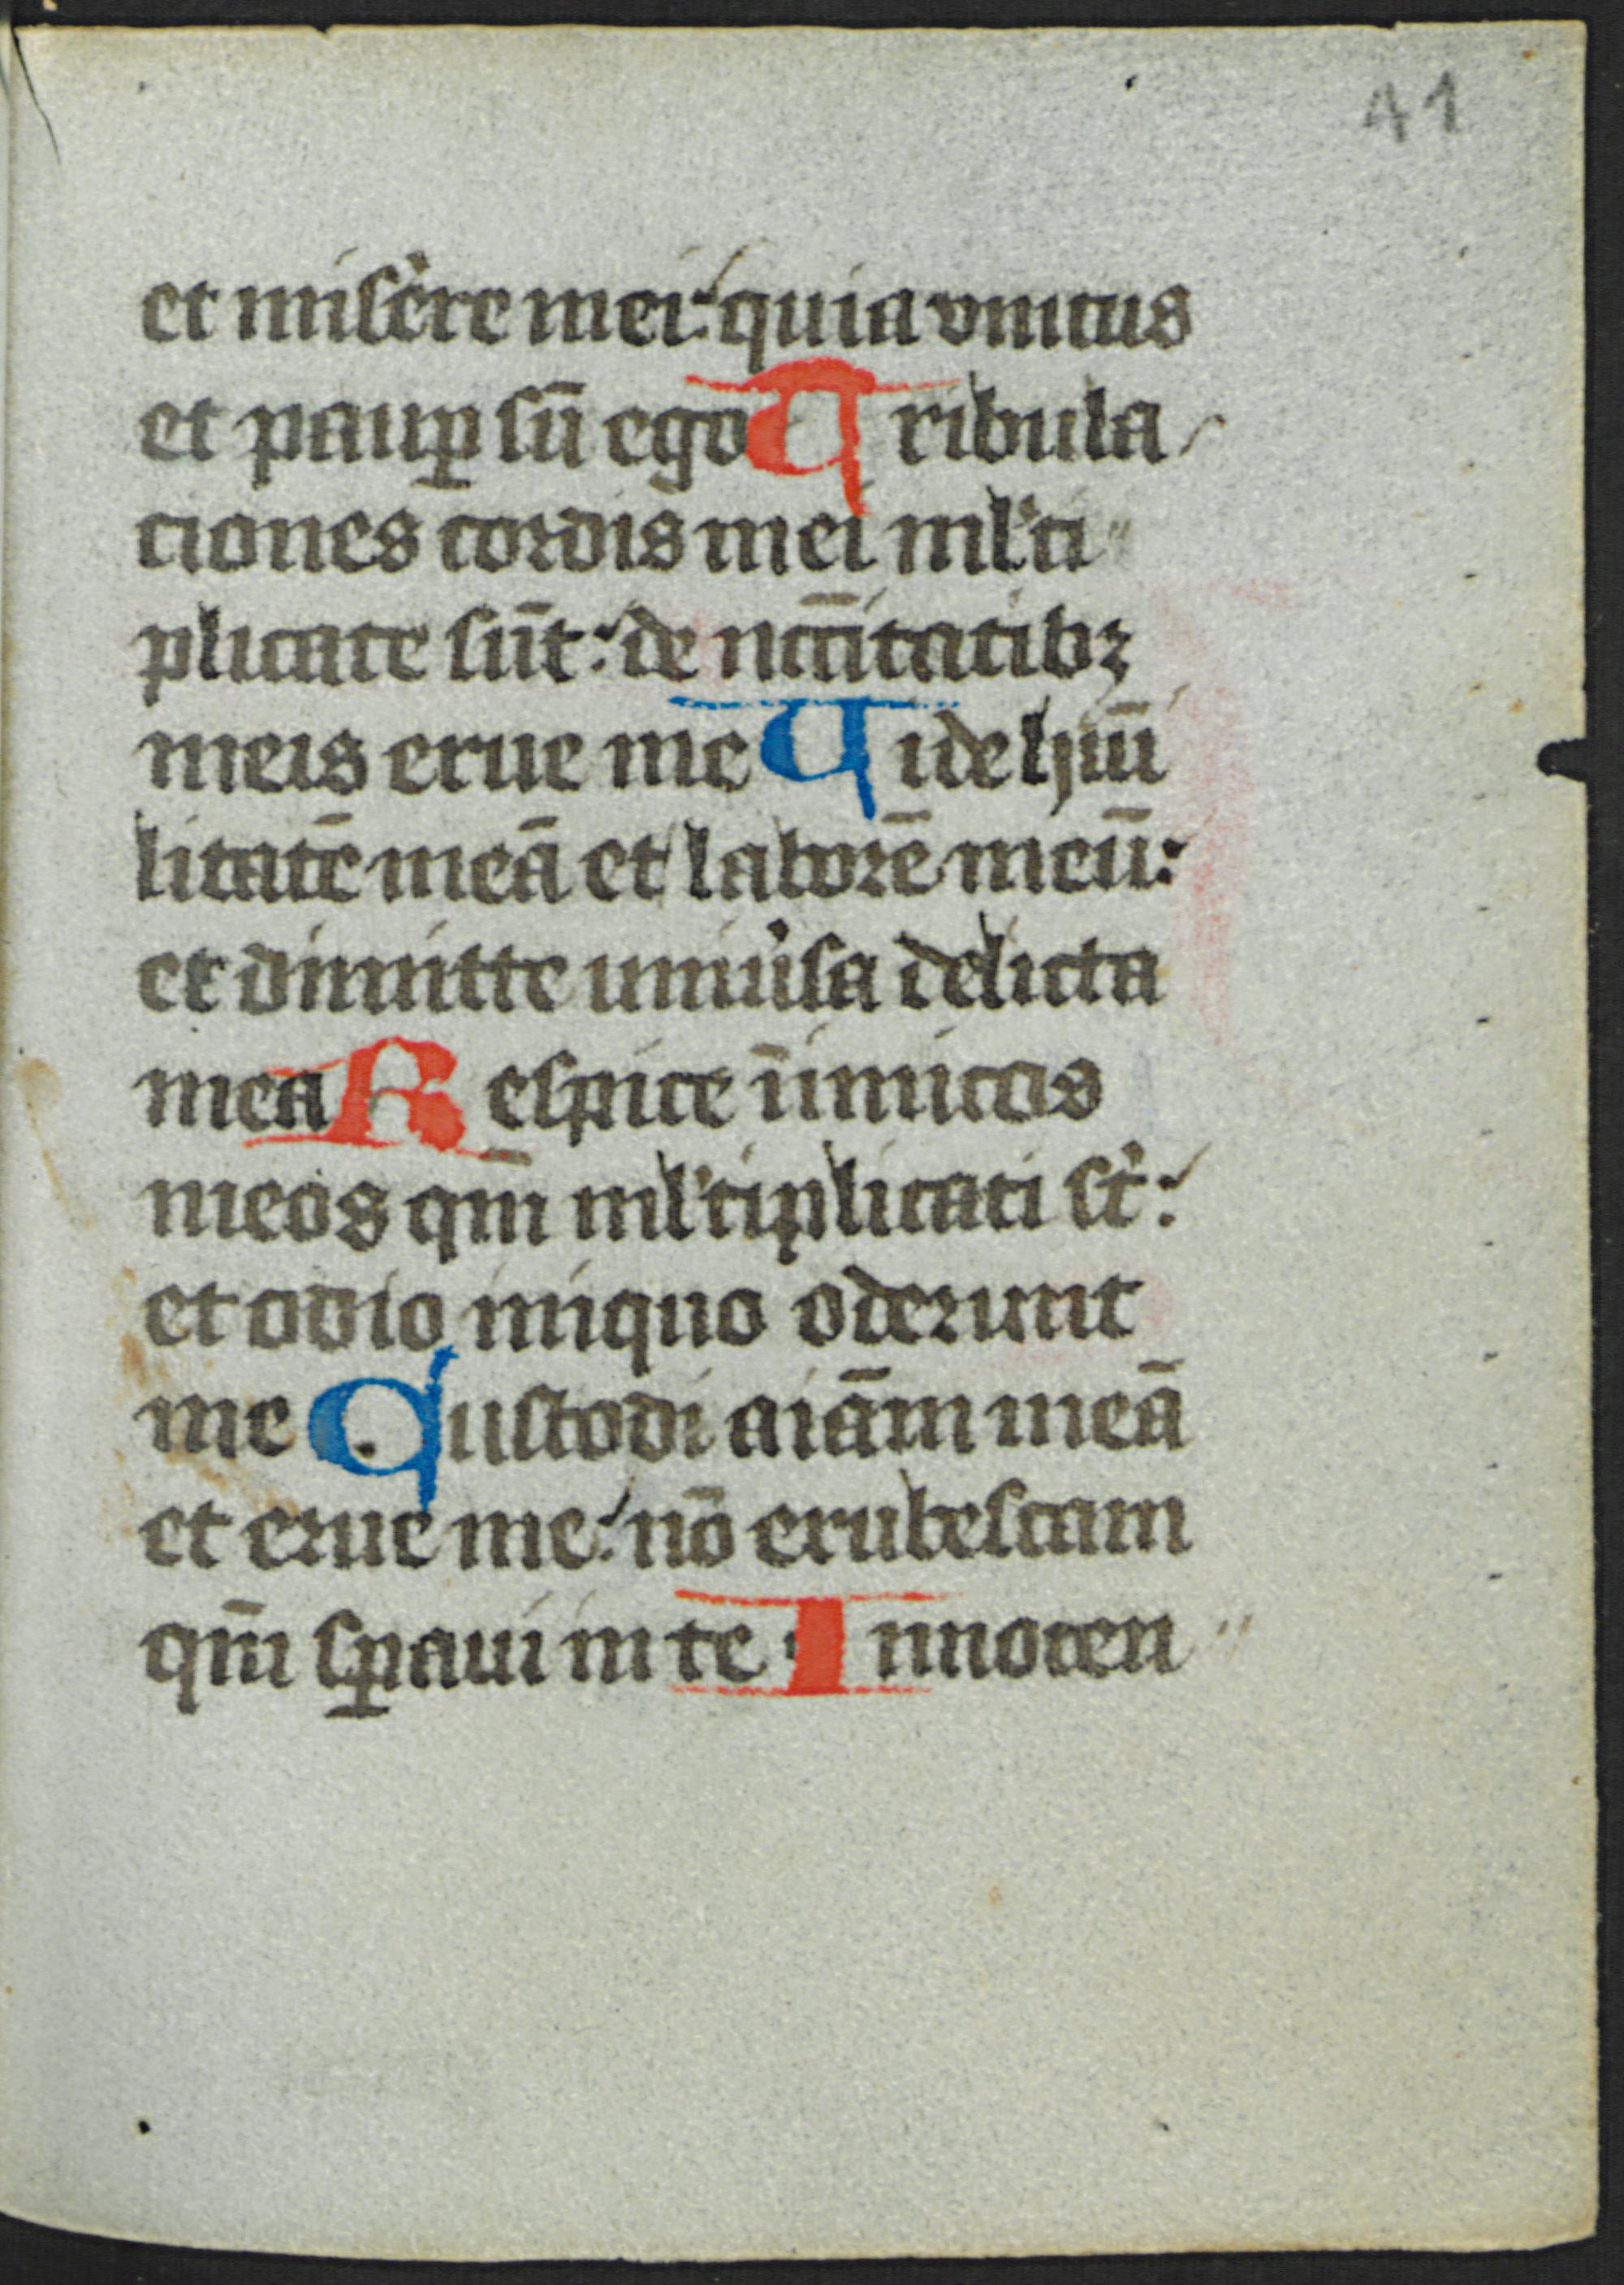 41
et misere mei: quia vnicus
et paup̲ sū ego Tribula
ciones cordis mei ml'ti
plicate sūt: de nccītatibȝ
meis erue me Vide hūi
litatē meā et laborē meū:
et dimitte uniu'sa delicta
mea Respice inimicos
meos qm̄ ml'tiplicati st':
et odio iniquo oderunt
me Custodi aiām meā
et erue me: nō erubescam
qm̄ sꝑaui in te Innocen